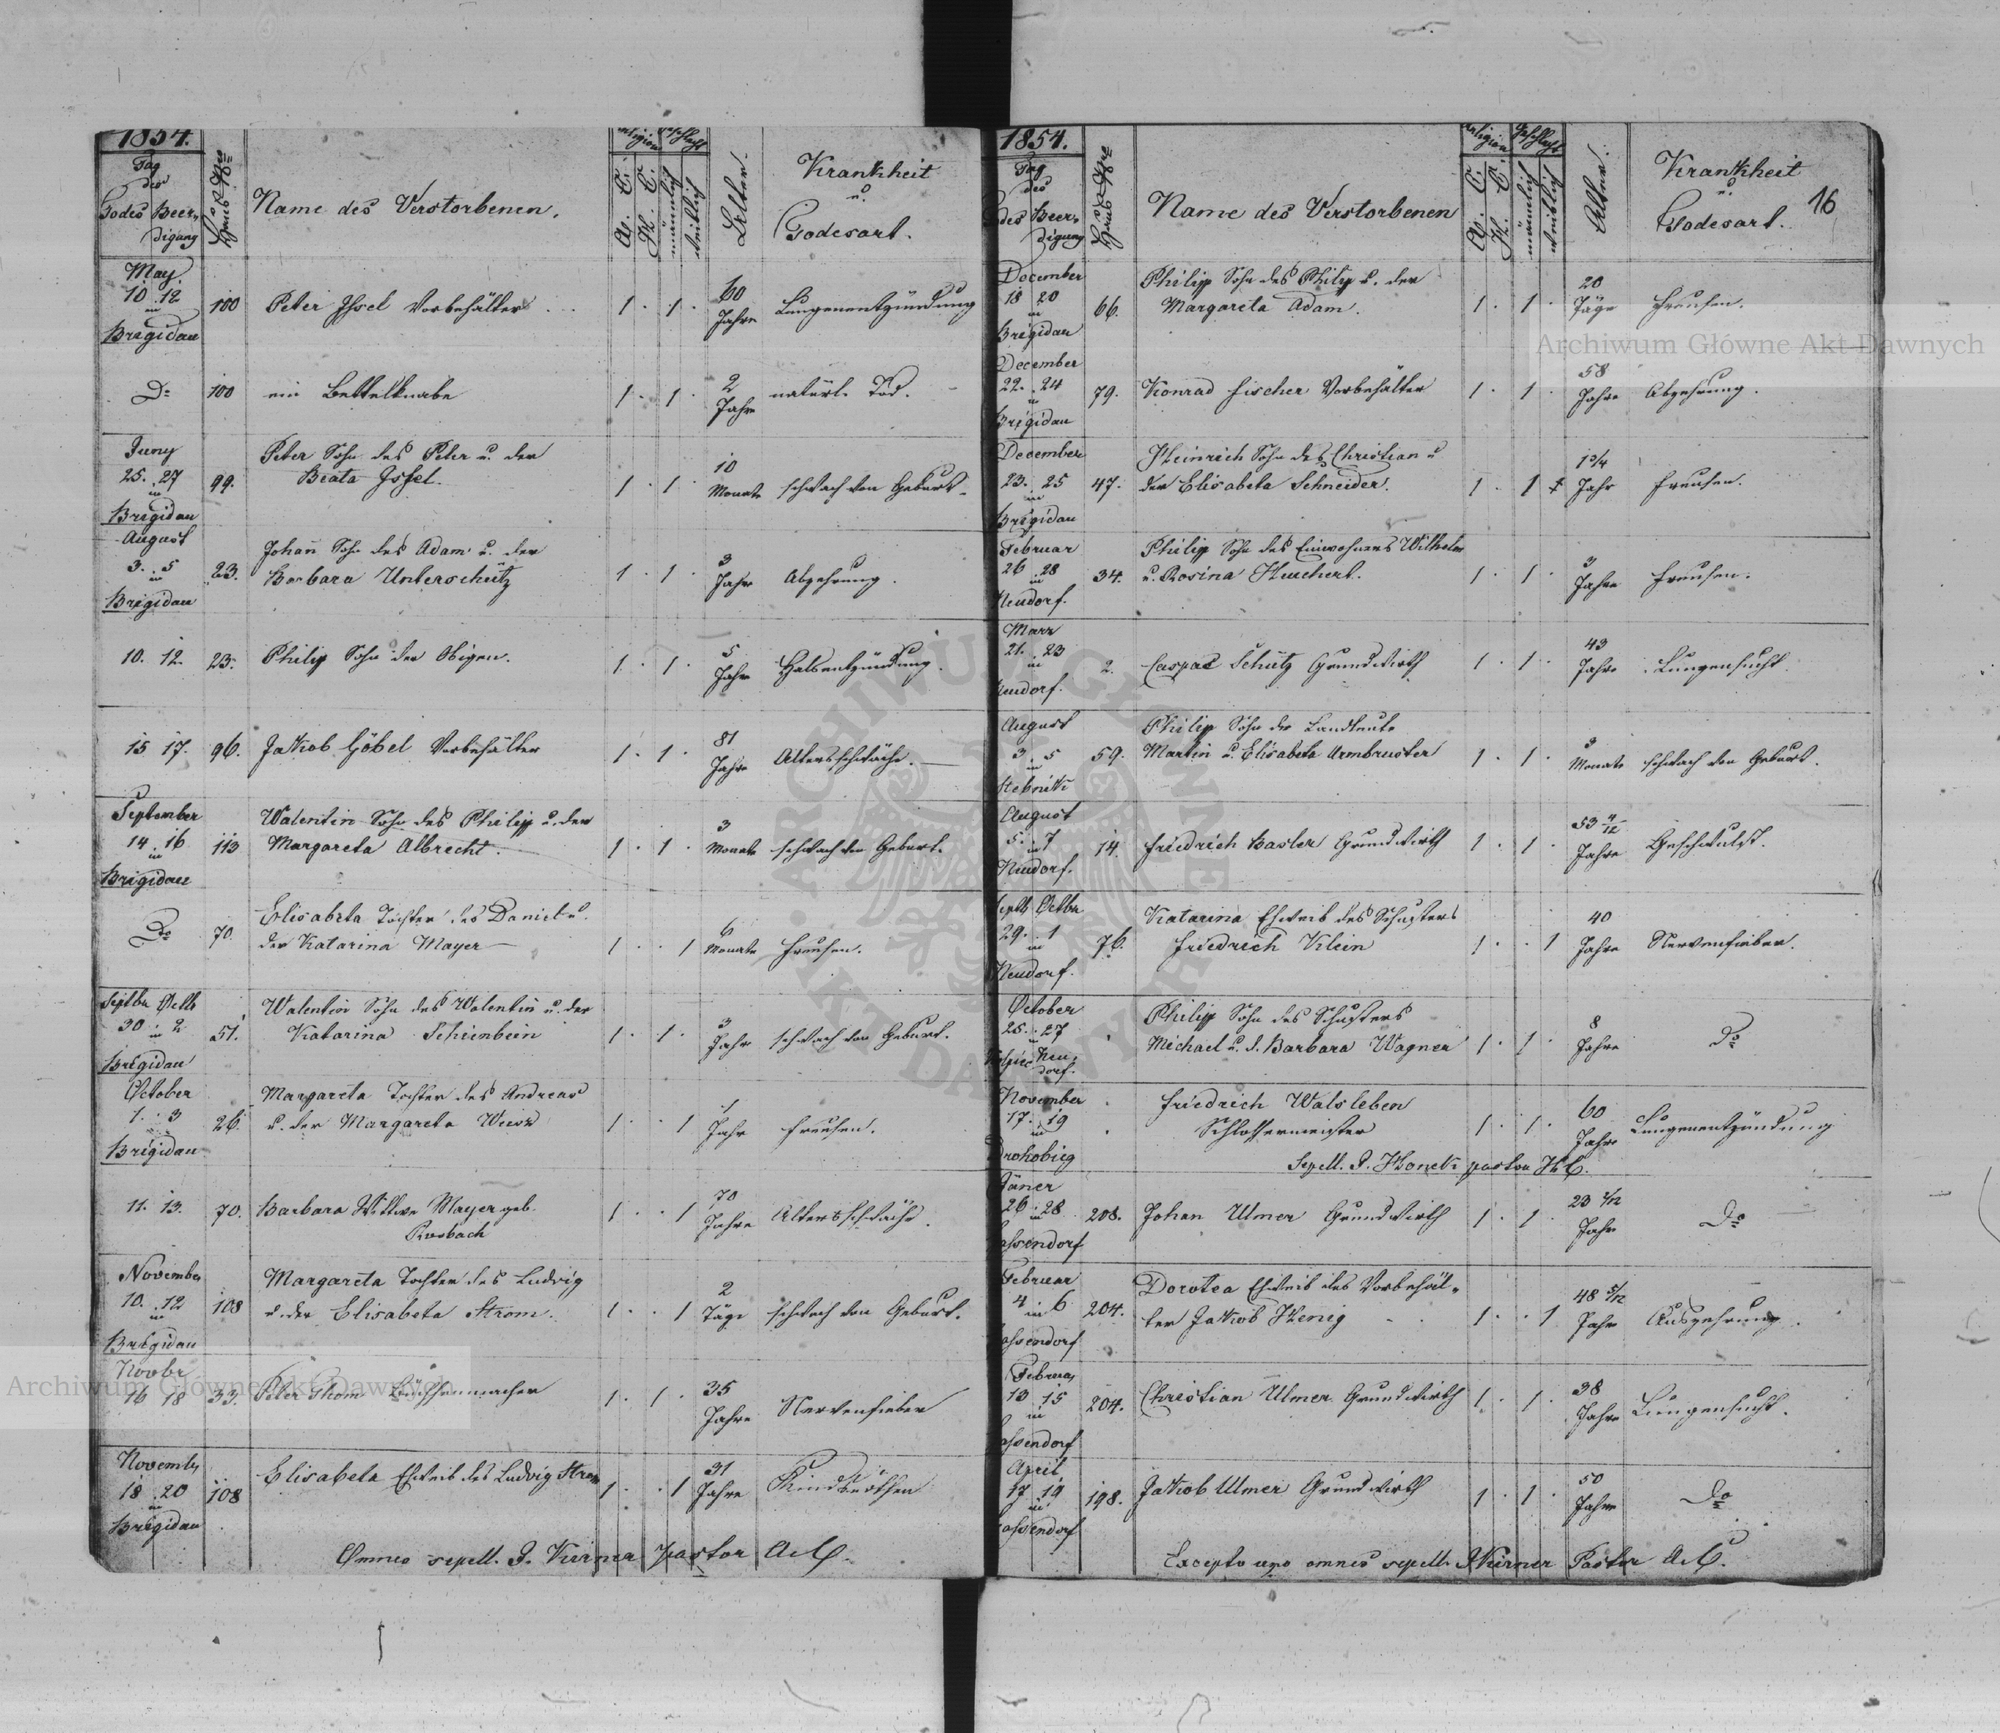 1854.
Tag
des
Todes Beer-
digung
Haus Nro
Name des Verstorbenen.
Religion
A. C.
H. C.
Geschlecht
männlich
weiblich
Alter.
Krankheit
u.
Todesart.
May.
10. 12
in
Brigidau
100
Peter Issel Vorbehälter
1 . 1 .
60
Jahre
Lungenentzündung
Do
100
ein Bettelknabe
1 . 1 .
2
Jahre
natürl. Tod.
Juny
25. 27
in
Brigidau
99.
Peter Sohn des Peter u. der
Beata Issel.
1 . 1 .
10
Monate
schwach von Geburt.
August
3. 5
in
Brigidau
23.
Johann Sohn des Adam u. der
Barbara Unterschütz
1 . 1 .
3
Jahre
Abzehrung.
10. 12.
23.
Philip Sohn der Obigen.
1 . 1 .
5
Jahre
Halsentzündung.
15 17.
96.
Jakob Göbel Vorbehälter
1 . 1 .
81
Jahre
Altersschwäche.
September
14. 16
in
Brigidau
113
Walentin Sohn des Philip u. der
Margareta Albrecht.
1 . 1 .
3
Monate
schwach von Geburt.
Do
70.
Elisabeta Tochter des Daniel u.
der Katarina Mayer
1 . . 1
6
Monate
Freusen.
Septbr Octb
30 in 2
Brigidau
51.
Walentin Sohn des Walentin u. der
Katarina Scheinbein
1 . 1 .
3
Jahre
schwach von Geburt.
October
1. 3
Brigidau
26
Margareta Tochter des Andreas
u. der Margareta Weisz
1 . . 1
1
Jahr
Freusen.
11. 13.
70.
Barbara Wittwe Mayer geb.
Rosbach
1 . . 1
70
Jahre
Altersschwäche.
November
10. 12
in
Brigidau
108
Margareta Tochter des Ludwig
u. der Elisabeta Strom.
1 . . 1
2
Täge
schwach von Geburt.
Novbr
16 18
33.
Peter Thom Büchsenmacher
1 . 1 .
35
Jahre
Nervenfieber
November
18. 20
in
Brigidau
108
Elisabeta Eheweib des Ludwig Strom
1 . . 1
31
Jahre
Omnes sepell. J. Kirner Pastor A. C.
1854.
Tag
des
Todes Beer-
digung
Haus Nro
Name des Verstorbenen
Religion
A. C.
H. C.
Geschlecht
männlich
weiblich
Alter.
Krankheit
u.
Todesart.
16
December
18 20
in
Brigidau
66.
Philipp Sohn des Philip u. der
Margareta Adam.
1 . 1 .
20
Täge
Freusen.
December
22. 24
in
Brigidau
79.
Konrad Fischer Vorbehälter
1 . 1 .
58
Jahre
Abzehrung.
December
23. 25
in
Brigidau
47.
Heinrich Sohn des Christian u
der Elisabeta Schneider.
1 . 1
1 3/4
Jahr
Freusen.
Februar
26 28
in
Neudorf.
34.
Philipp Sohn des Einwohners Wilhelm
u. Rosina
1 . 1 .
3
Jahre
Freusen.
März
21. 23
in
Neudorf.
2.
Caspar Schütz Grundwirth
1 . 1 .
43
Jahre
Lungensucht.
August
3. 5
in
Stebnik
59.
Philipp Sohn der Landleute
Martin u. Elisabeta Armbruster
1 . 1 .
3
Monate
schwach von Geburt.
August
5. 7
in
Neudorf.
14.
Friedrich Basler Grundwirth
1 . 1 .
53 4/12
Jahre
Geschwulst.
Septb Octbr
29. 1
in
Neudorf.
76.
Katarina Eheweib des Schusters
Friedrich Klein
1 . . 1
40
Jahre
Nervenfieber.
October
25. 27
in
Neu-
dorf.
Philipp Sohn des Schusters
Michael u. d. Barbara Wagner
1 . 1 .
8
Jahre
do
November
17. 19
in
Drohobicz
Friedrich Walsleben
Schlossermeister
1 . 1 .
60
Jahre
Lungenentzündung
Sepell. J. Pastor H. C.
Jäner
26 28
in
Gassendorf
208.
Johan Ulmer Grundwirth
1 . 1 .
Jahre
Do
Februar
4 in 6
Gassendorf
204.
Dorotea Eheweib des Vorbehäl-
ter Jakob Henig
1 . . 1
Jahre
Auszehrung.
Februar
13 15
in
Gassendorf
204.
Christian Ulmer Grundwirth
1 . 1 .
38
Jahre
Lungensucht.
April
17 19
in
Gassendorf
198.
Jakob Ulmer Grundwirth
1 . 1 .
50
Jahre
Do
Excepto uno omnes sepell. J Kirner Pastor A. C.
Archiwum Główne Akt Dawnych
Archiwum Główne Akt Dawnych
ARCHIWUM GŁÓWNE AKT DAWNYCH